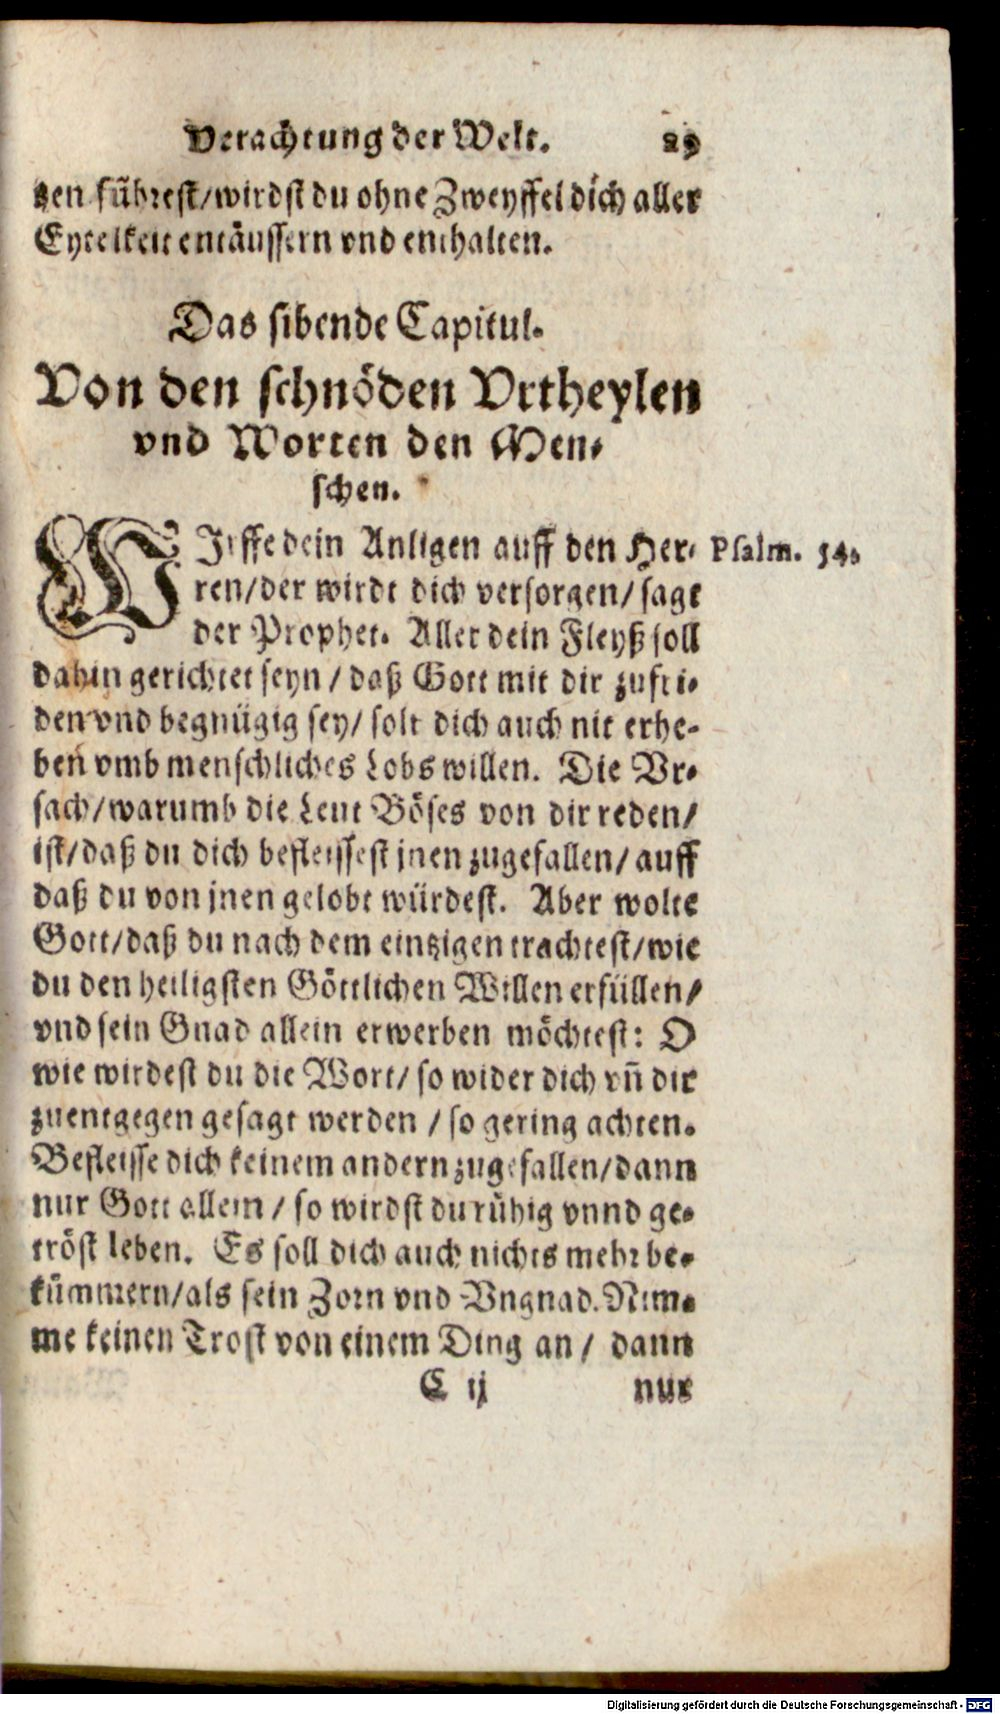 Verachtung der Welt. 29
tzen führest/wirdst du ohne Zweyffel dich aller
Eytelkeit entäussern vnd enthalten.
Das sibende Capitul.
Von den schnöden Vrtheylen
vnd Worten den Men-
schen.
WIrffe dein Anligen auff den Her- Psalm. 54.
ren/der wirdt dich versorgen/sagt
der Prophet. Aller dein Fleyß soll
dahin gerichtet seyn / daß Gott mit dir zufri-
den vnd begnügig sey/ solt dich auch nit erhe-
ben vmb menschliches Lobs willen. Die Vr-
sach/warumb die Leut Böses von dir reden/
ist/daß du dich befleissest jnen zugefallen/auff
daß du von jnen gelobt würdest. Aber wolte
Gott/daß du nach dem eintzigen trachtest/wie
du den heiligsten Göttlichen Willen erfüllen/
vnd sein Gnad allein erwerben möchtest: O
wie wirdest du die Wort/ so wider dich vñ dir
zuentgegen gesagt werden / so gering achten.
Befleisse dich keinem andern zugefallen/dann
nur Gott allein / so wirdst du rühig vnnd ge-
tröst leben. Es soll dich auch nichts mehr be-
kümmern/als sein Zorn vnd Vngnad. Nim-
me keinen Trost von einem Ding an / dann
C ij nur
Digitalisierung gefördert durch die Deutsche Forschungsgemeinschaft - DFG